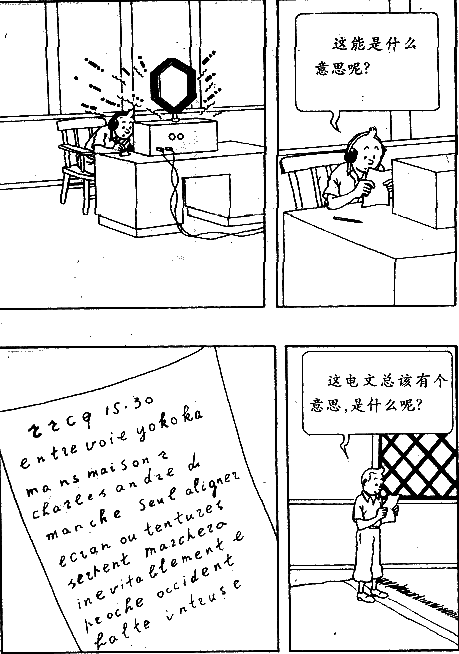 这能是什么
意思呢?
zzcq 15.30
entrevoie yokoka
mans maison z
charles andre d
manche seul aligner
ecran ou tentures
serpent marchera
inevitablement e
proche occident
halte intruse
这电文总该有个
意思,是什么呢?